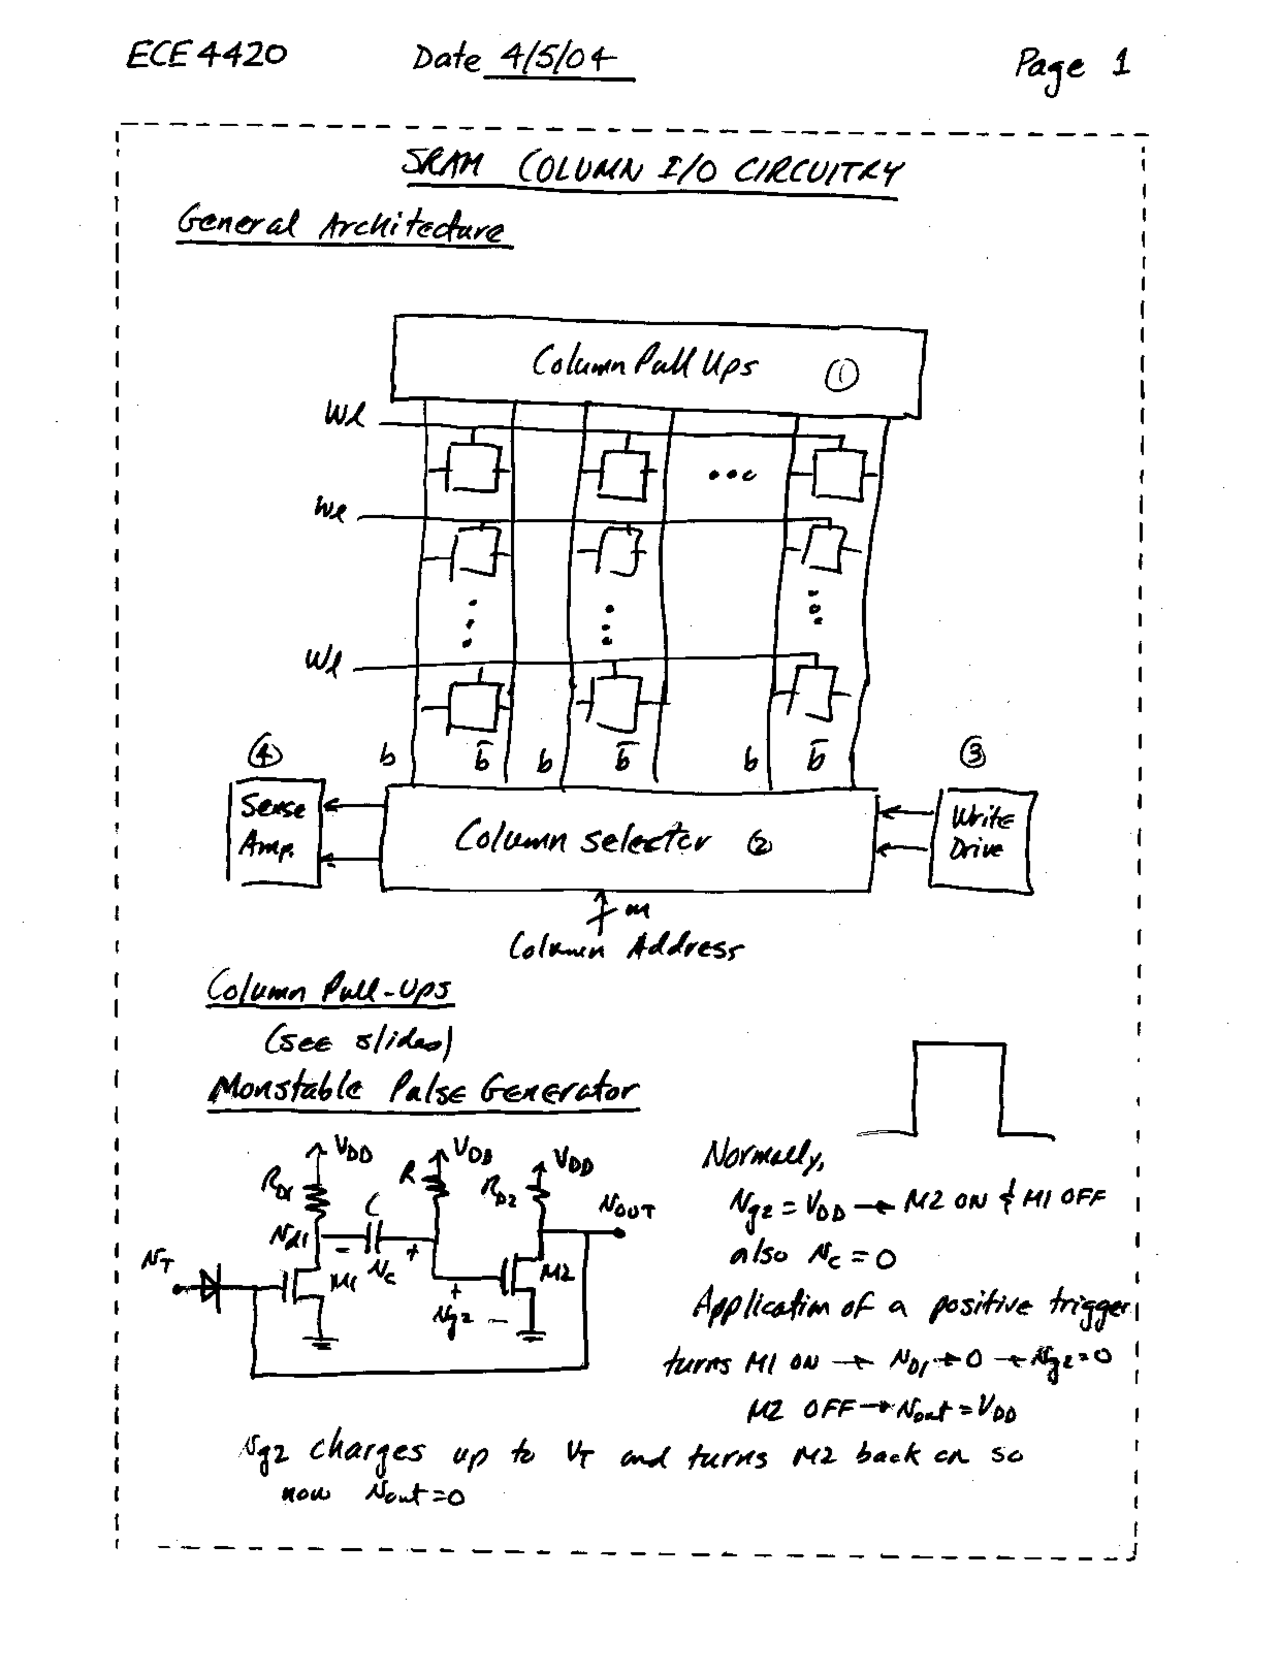 ECE 4420 Date 4/5/04 Page 1
SRAM COLUMN I/O CIRCUITRY
General Architecture
Column Pull Ups ①
Wl
Wl
Wl
④ b b̅ b b̅ b b̅ ③
Sense Amp.
Column Selector ②
Write Drive
m
Column Address
Column Pull-Ups
(see slides)
Monstable Pulse Generator
VDD VDD VDD
RD1 R RD2
C
vd1 - + vOUT
vT M1 vc M2
+ vg2 -
Normally,
vg2 = VDD → M2 ON & M1 OFF
also vc = 0
Application of a positive trigger
turns M1 ON → vD1 → 0 → vg2=0
M2 OFF → vout = VDD
vg2 charges up to VT and turns M2 back on so
now vout = 0